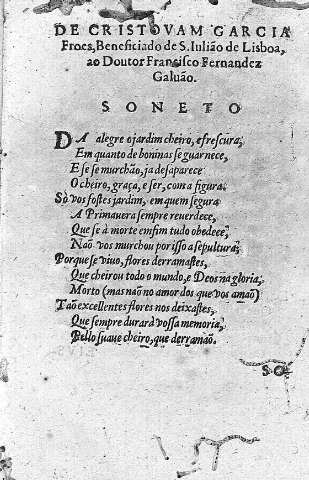 DE CRISTOVAM GARCIA
Froes, Beneficiado de S. Iulião de Lisboa,
ao Doutor Francisco Fernandez
Galuão.
SONETO
DA alegre o jardim cheiro, e frescura;
Em quanto de boninas se guarnece,
E se se murchão, ja desaparece
O cheiro, graça, e ser, com a figura;
Sò vos fostes jardim, em quem segura
A Primauera sempre reuerdece,
Que se à morte emfim tudo obedece,
Não vos murchou por isso a sepultura;
Porque se viuo, flores derramastes,
Que cheirou todo o mundo, e Deos na gloria,
Morto (mas naõ no amor dos que vos amaõ)
Taõ excellentes flores nos deixastes,
Que sempre durarà vossa memoria,
Pello suaue cheiro, que derramão.
SO-